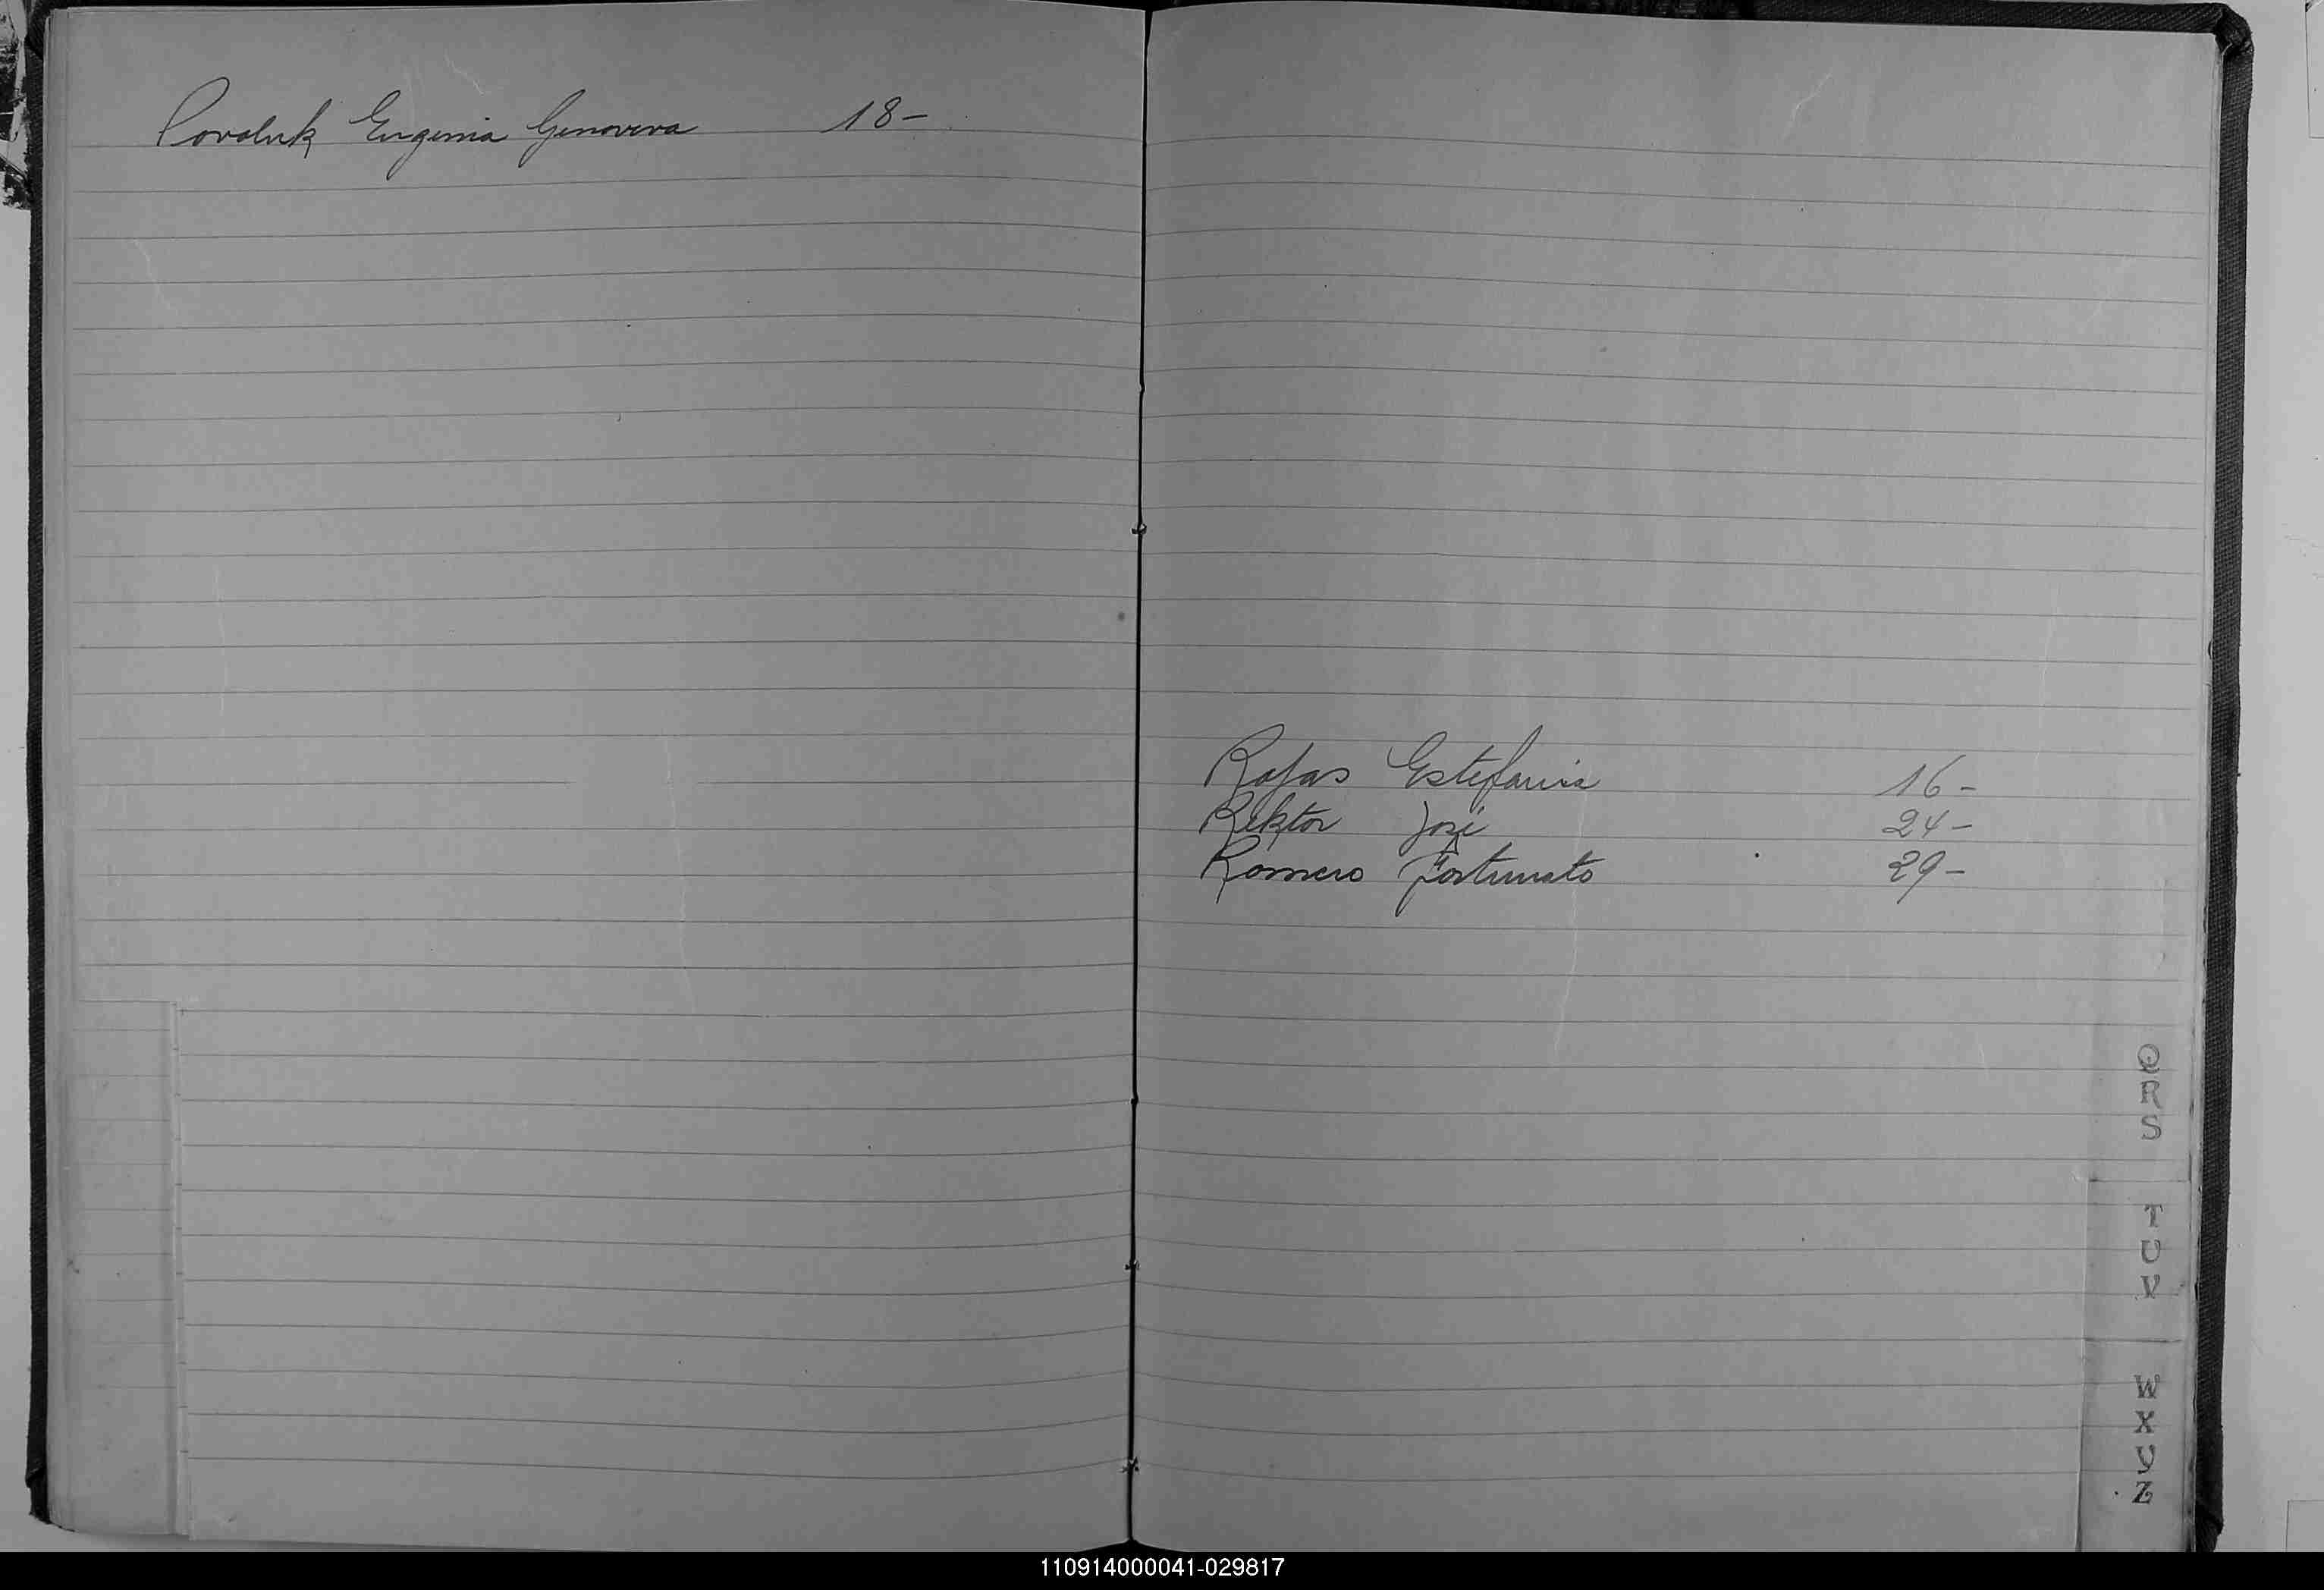 Povoluk Eugenia Genoveva 18-
Rojas Estefania 16-
Rektor José 24-
Romero Fortunato 29-
Q
R
S
T
U
V
W
X
Y
Z
110914000041-029817